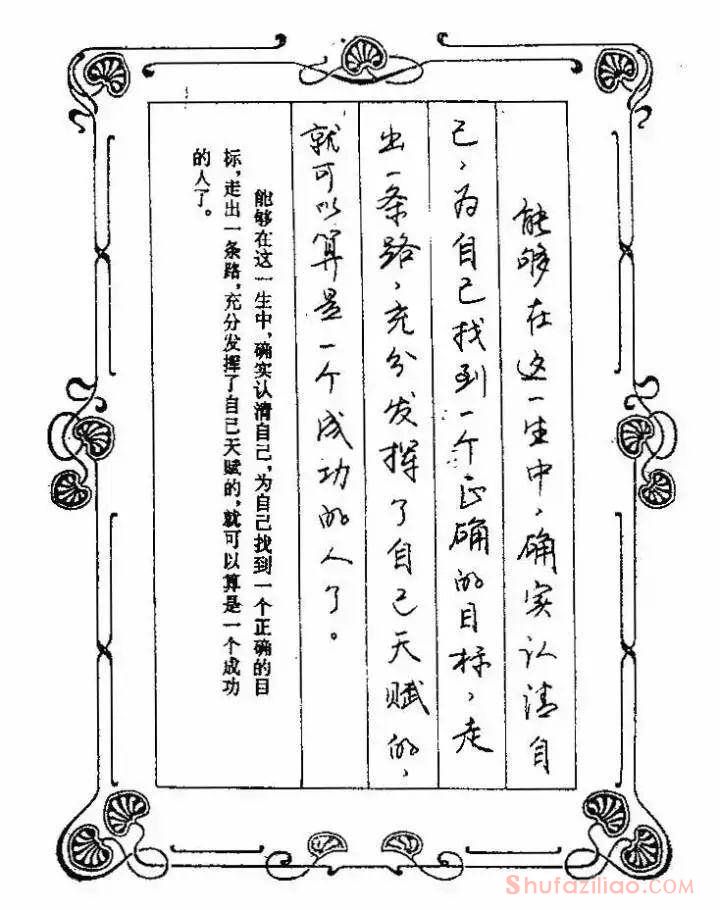 能够在这一生中，确实认清自
己，为自己找到一个正确的目标，走
出一条路，充分发挥了自己天赋的，
就可以算是一个成功的人了。
能够在这一生中，确实认清自己，为自己找到一个正确的目
标，走出一条路，充分发挥了自己天赋的，就可以算是一个成功
的人了。
Shufaziliao.com